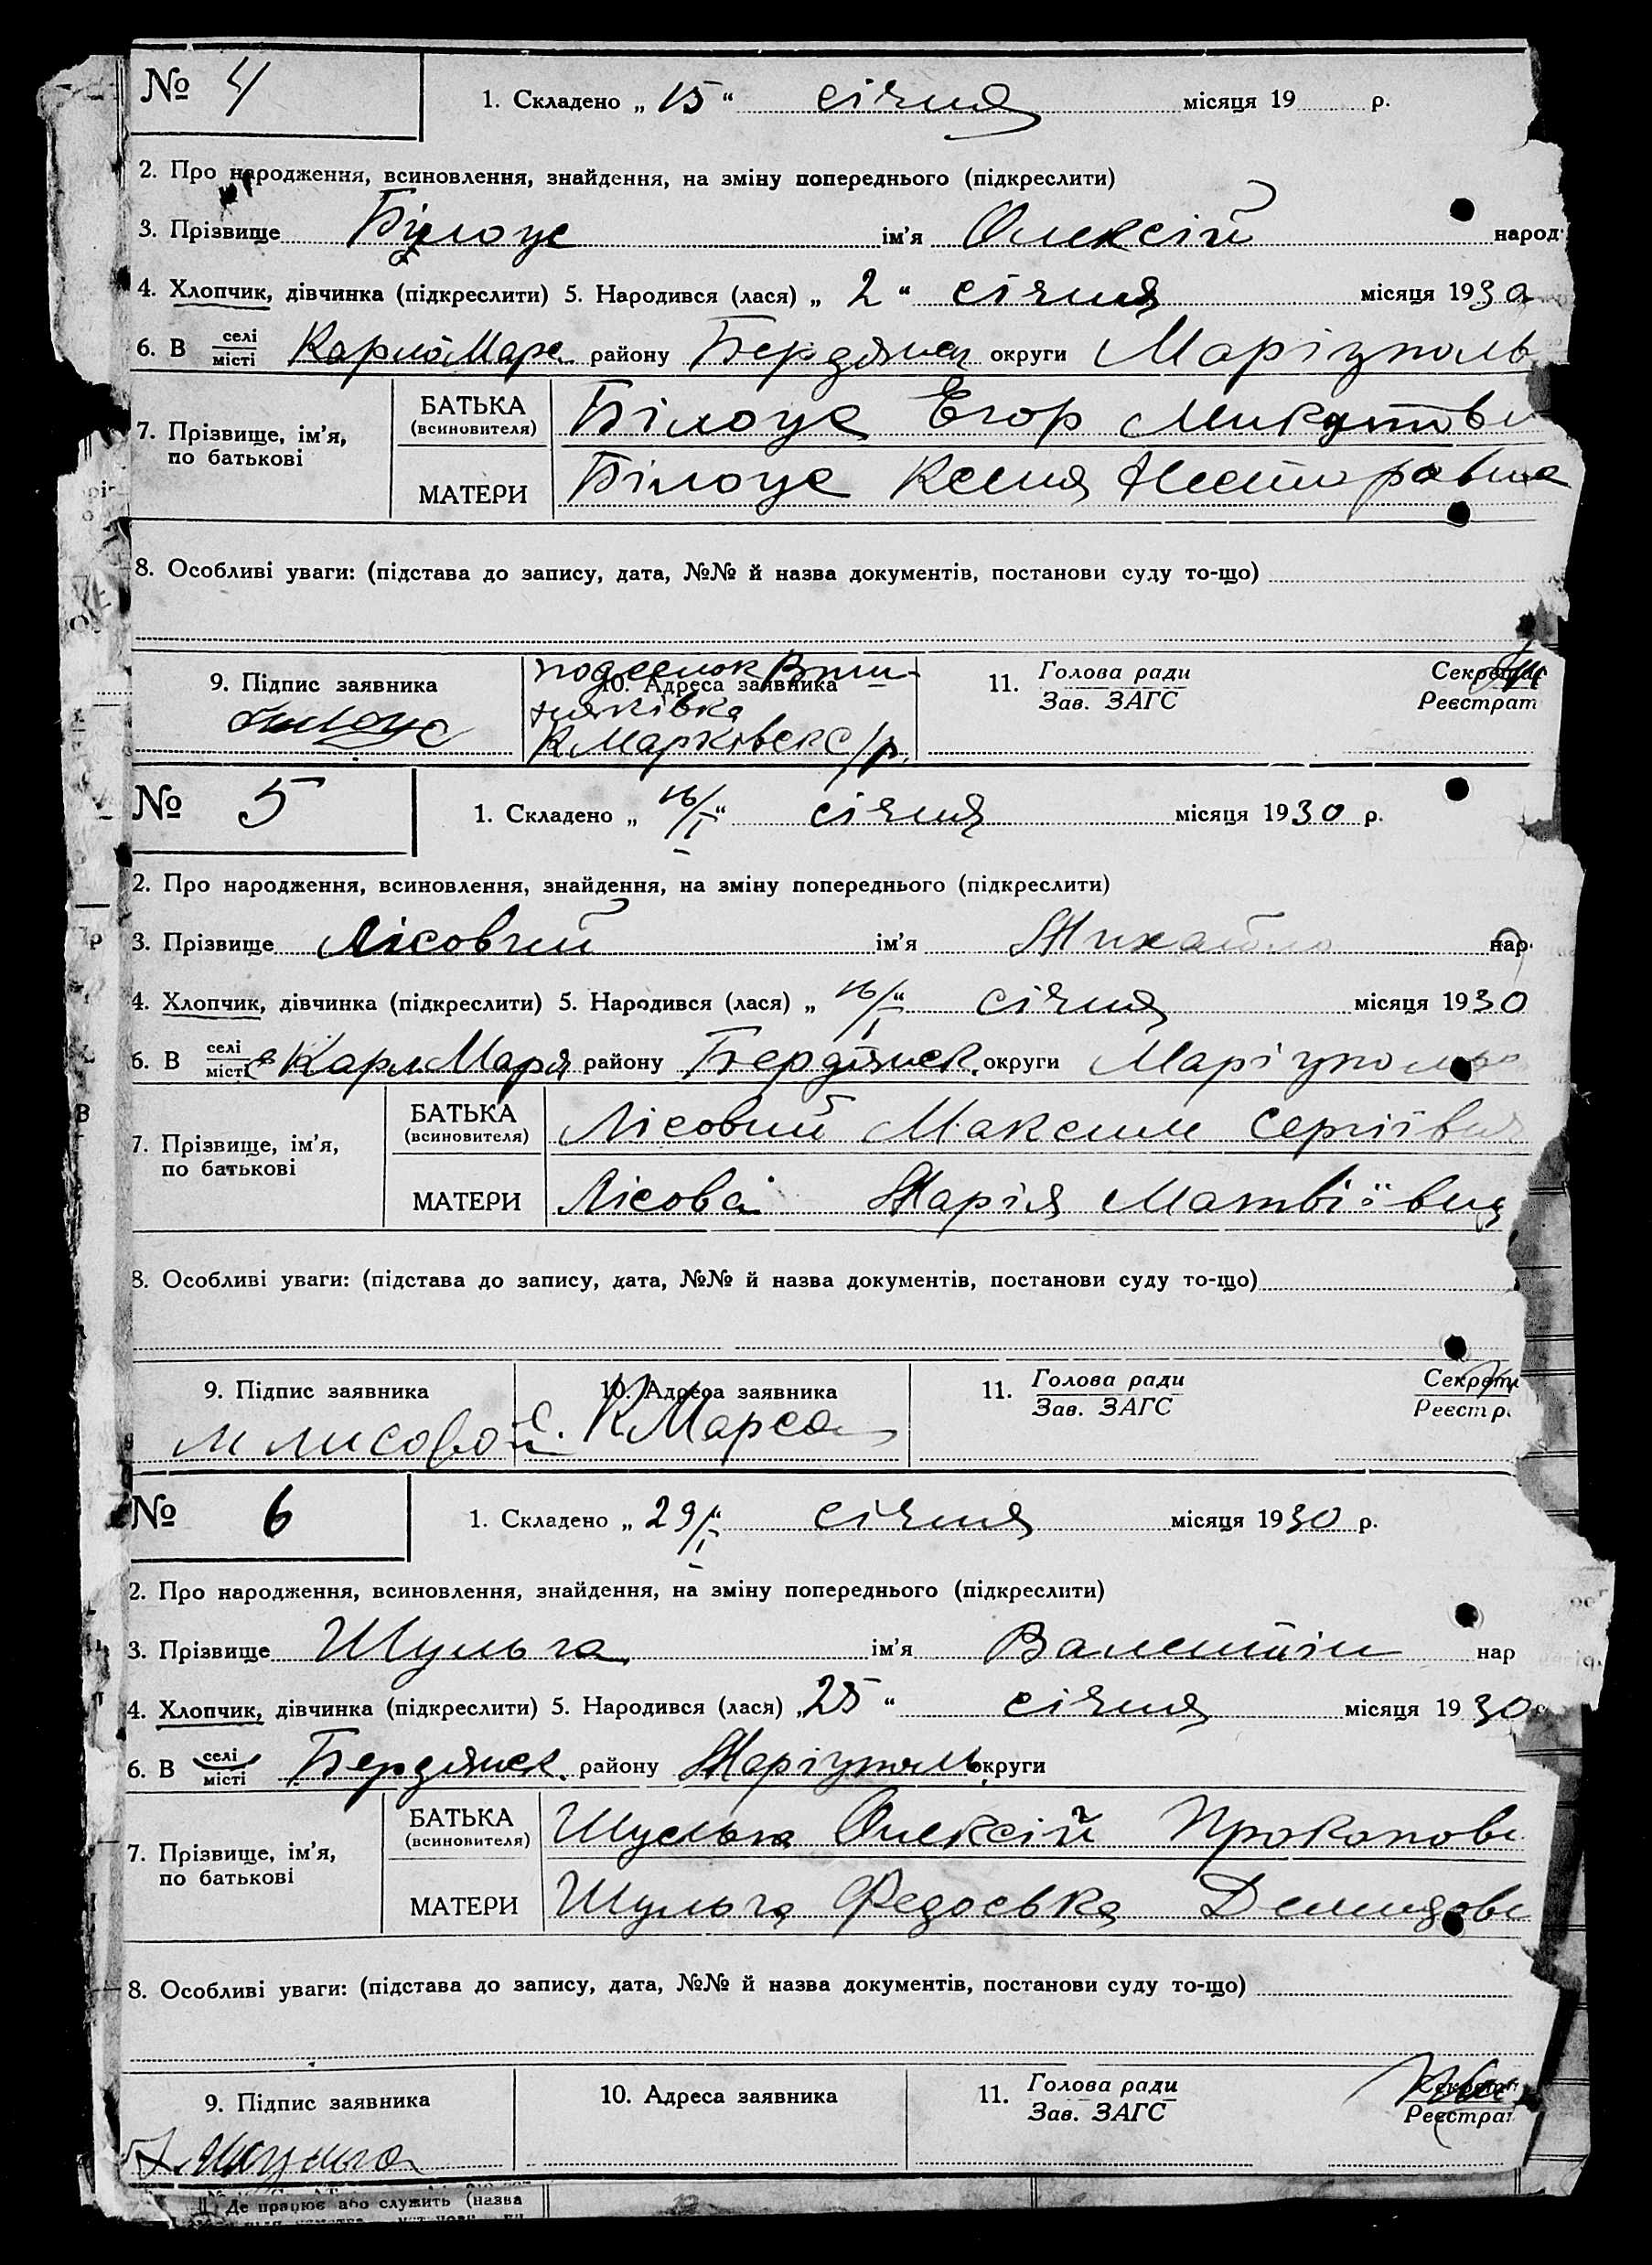 № 4
1. Складено „ 15 “ січня місяця 19 р.
2. Про народження, всиновлення, знайдення, на зміну попереднього (підкреслити)
3. Прізвище Білоус ім’я Олексій народ
4. Хлопчик, дівчинка (підкреслити) 5. Народився (лася) „ 2 “ січня місяця 1930
6. В селі місті Карло Марк района Бердянськ округи Маріуполь
7. Прізвище, ім’я, по батькові
БАТЬКА (всиновителя) Білоус Егор Микитови
МАТЕРИ Білоус Ксенія Несторовна
8. Особливі уваги: (підстава до запису, дата, №№ й назва документів, постанови суду то-що)
9. Підпис заявника 10. Адреса заявника 11. Голова ради Зав. ЗАГС Секретар Реєстрат
Білоус
К Марківск с/р.
№ 5
1. Складено „ 16/I “ січня місяця 1930 р.
2. Про народження, всиновлення, знайдення, на зміну попереднього (підкреслити)
3. Прізвище Лісовий ім’я Михайло нар
4. Хлопчик, дівчинка (підкреслити) 5. Народився (лася) „ 16/I “ січня місяця 1930
6. В селі місті Карл Маркя району Бердянськ. округи Маріуполь
7. Прізвище, ім’я, по батькові
БАТЬКА (всиновителя) Лісовий Максим Сергіївич
МАТЕРИ Лісова Марія Матвіївна
8. Особливі уваги: (підстава до запису, дата, №№ й назва документів, постанови суду то-що)
9. Підпис заявника 10. Адреса заявника 11. Голова ради Зав. ЗАГС Секрет Реєстр
М Лисовой С. К Маркса
№ 6
1. Складено „ 29/I “ січня місяця 1930 р.
2. Про народження, всиновлення, знайдення, на зміну попереднього (підкреслити)
3. Прізвище Шульга ім’я Валентін нар
4. Хлопчик, дівчинка (підкреслити) 5. Народився (лася) „ 25 “ січня місяця 1930
6. В селі місті Бердянськ. району Маріуполь округи
7. Прізвище, ім’я, по батькові
БАТЬКА (всиновителя) Шульга Олексій Прокопови
МАТЕРИ Шульга Федоська Демидовн
8. Особливі уваги: (підстава до запису, дата, №№ й назва документів, постанови суду то-що)
9. Підпис заявника 10. Адреса заявника 11. Голова ради Зав. ЗАГС Секретар Реєстрат
Шульга
Де працює або служить (назва